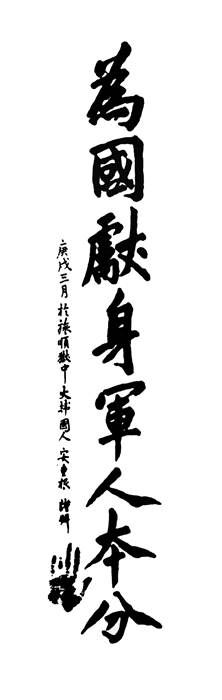 為國獻身軍人本分
庚戌三月 於旅順獄中 大韓國人 安重根 謹拜